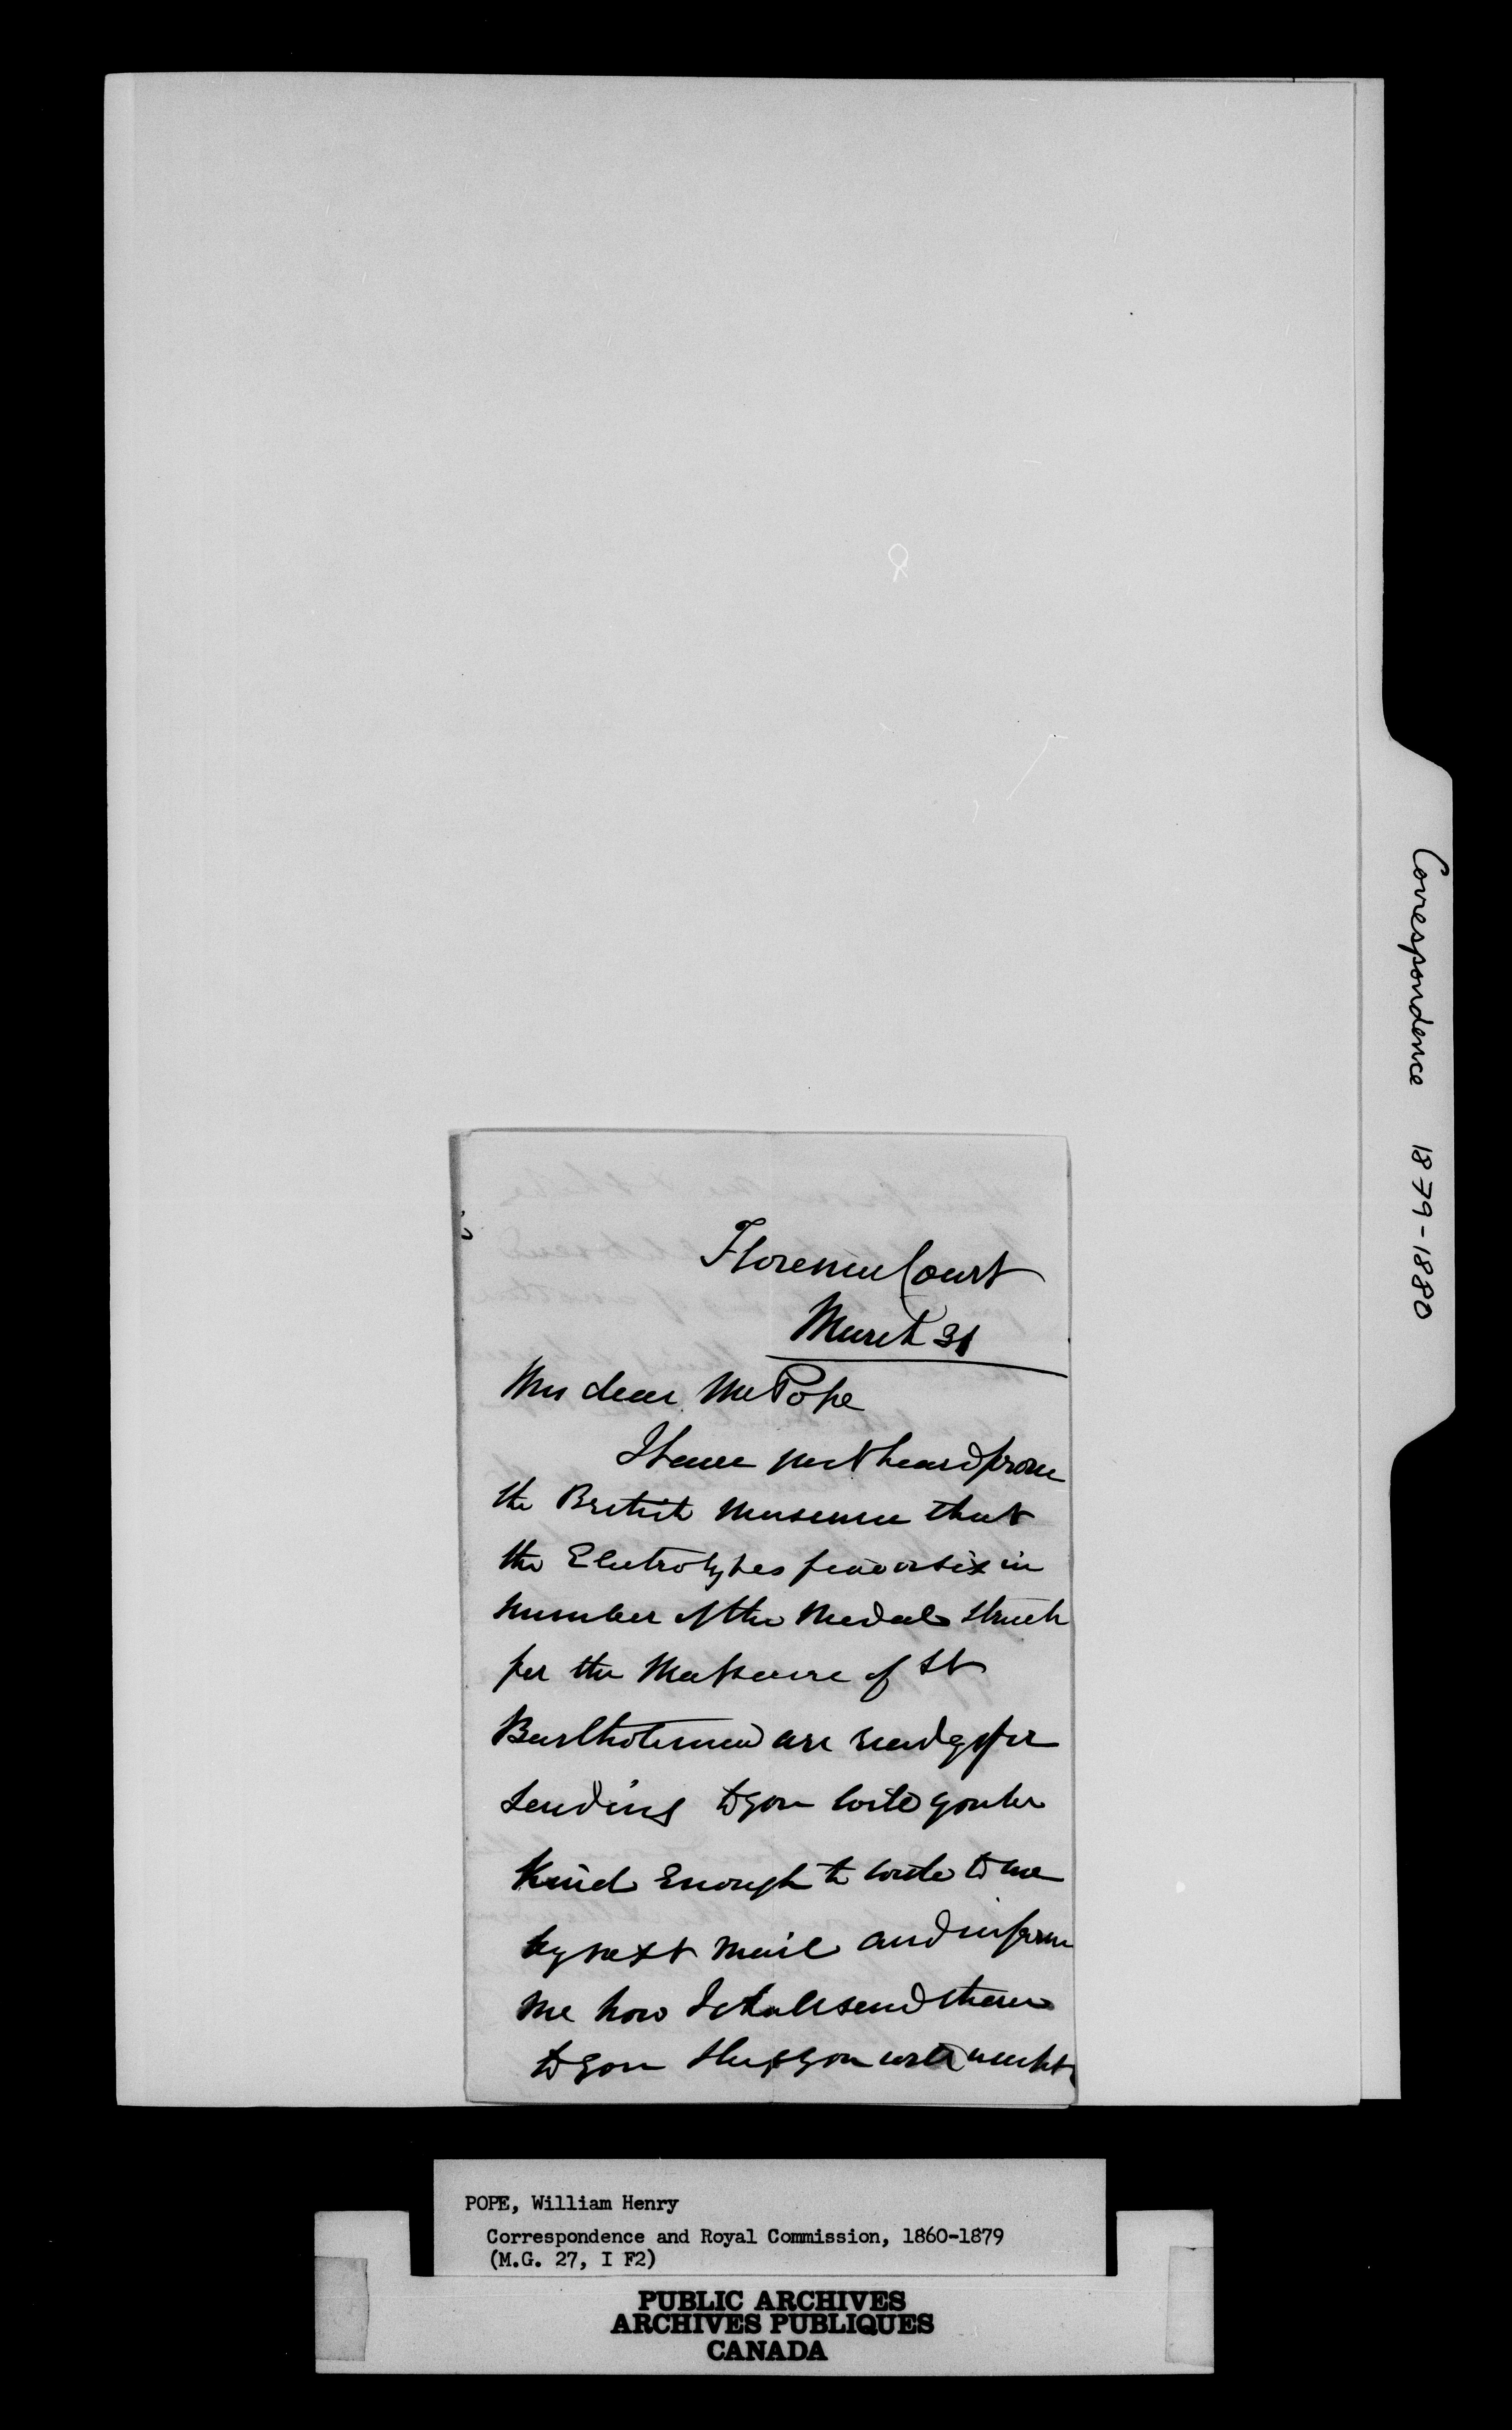 Correspondence 1879-1880
Florence Court
March 31
My dear Mr Pope
I have just heard from
the British Museum that
the Electrotypes five or six in
number of the Medal struck
for the Massacre of St
Bartholomew are ready for
sending to you will you be
kind Enough to write to me
by next mail and inform
me how I shall send them
to you they you will
POPE, William Henry
Correspondence and Royal Commission, 1860-1879
(M.G. 27, I F2)
PUBLIC ARCHIVES
ARCHIVES PUBLIQUES
CANADA